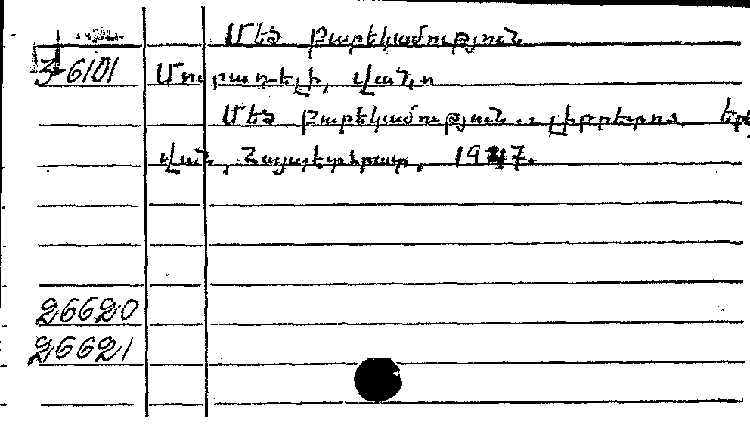 Մեծ բարեկամություն
3-6101 Մուրադելի, Վանո
Մեծ բարեկամություն. - լիբրետո. Երե
վան, Հայպետհրատ, 1947.
26620
26621